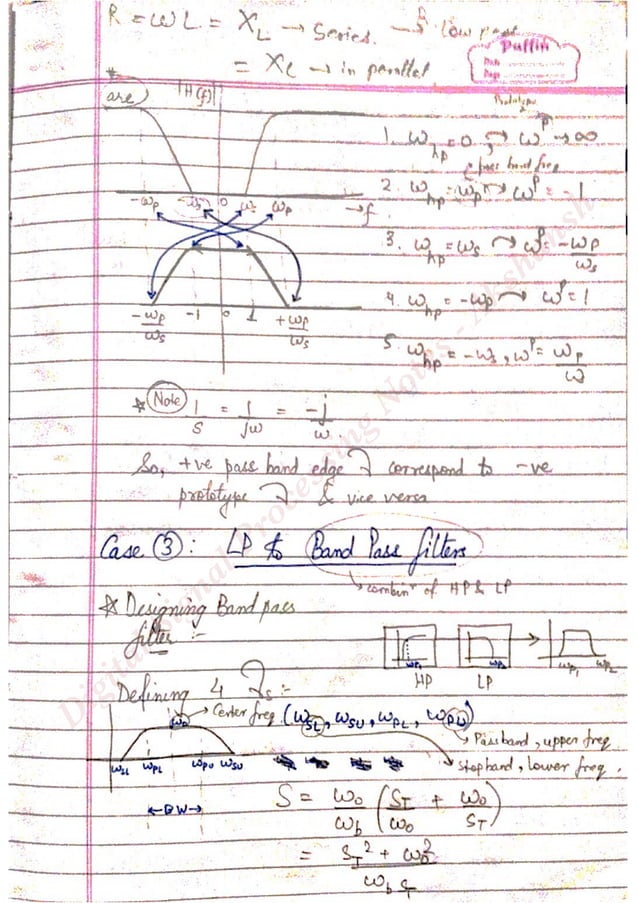 R = ωL = X_L → Series. → low pass
= X_L → in parallel
Puffin
Date
Page
are)
|H(f)|
Prototype
1. ω_hp = 0, → ω^p → ∞
pass band freq
2. ω_hp = ω_p → ω^p = -1
3. ω_hp = ω_s → ω^p - ω_p/ω_s
4. ω_hp = -ω_p → ω^p = 1
5. ω_hp = -ω_s, ω^p = ω_p/ω
-ω_p -ω_s 0 ω_s ω_p → f
-ω_p/ω_s -1 0 1 +ω_p/ω_s
* Note 1/S = 1/jω = -j/ω
So, +ve pass band edge f correspond to -ve
prototype f & vice versa
Case ③: LP to Band Pass filters
↳ combinⁿ of HP & LP
* Designing Band pass
filter :-
ω_P1 ω_P2 ω_P1 ω_P2
HP LP
Defining 4 f_s :-
ω_0 → Center freq. (ω_SL, ω_SU, ω_PL, ω_PU)
→ Passband, upper freq
Stopband, lower freq.
ω_SL ω_PL ω_PU ω_SU
← BW →
S = ω_0/ω_b (S_T/ω_0 + ω_0/S_T)
= S_T² + ω_0²/ω_b S_T
Digital Signal Processing Notes - Akshansh